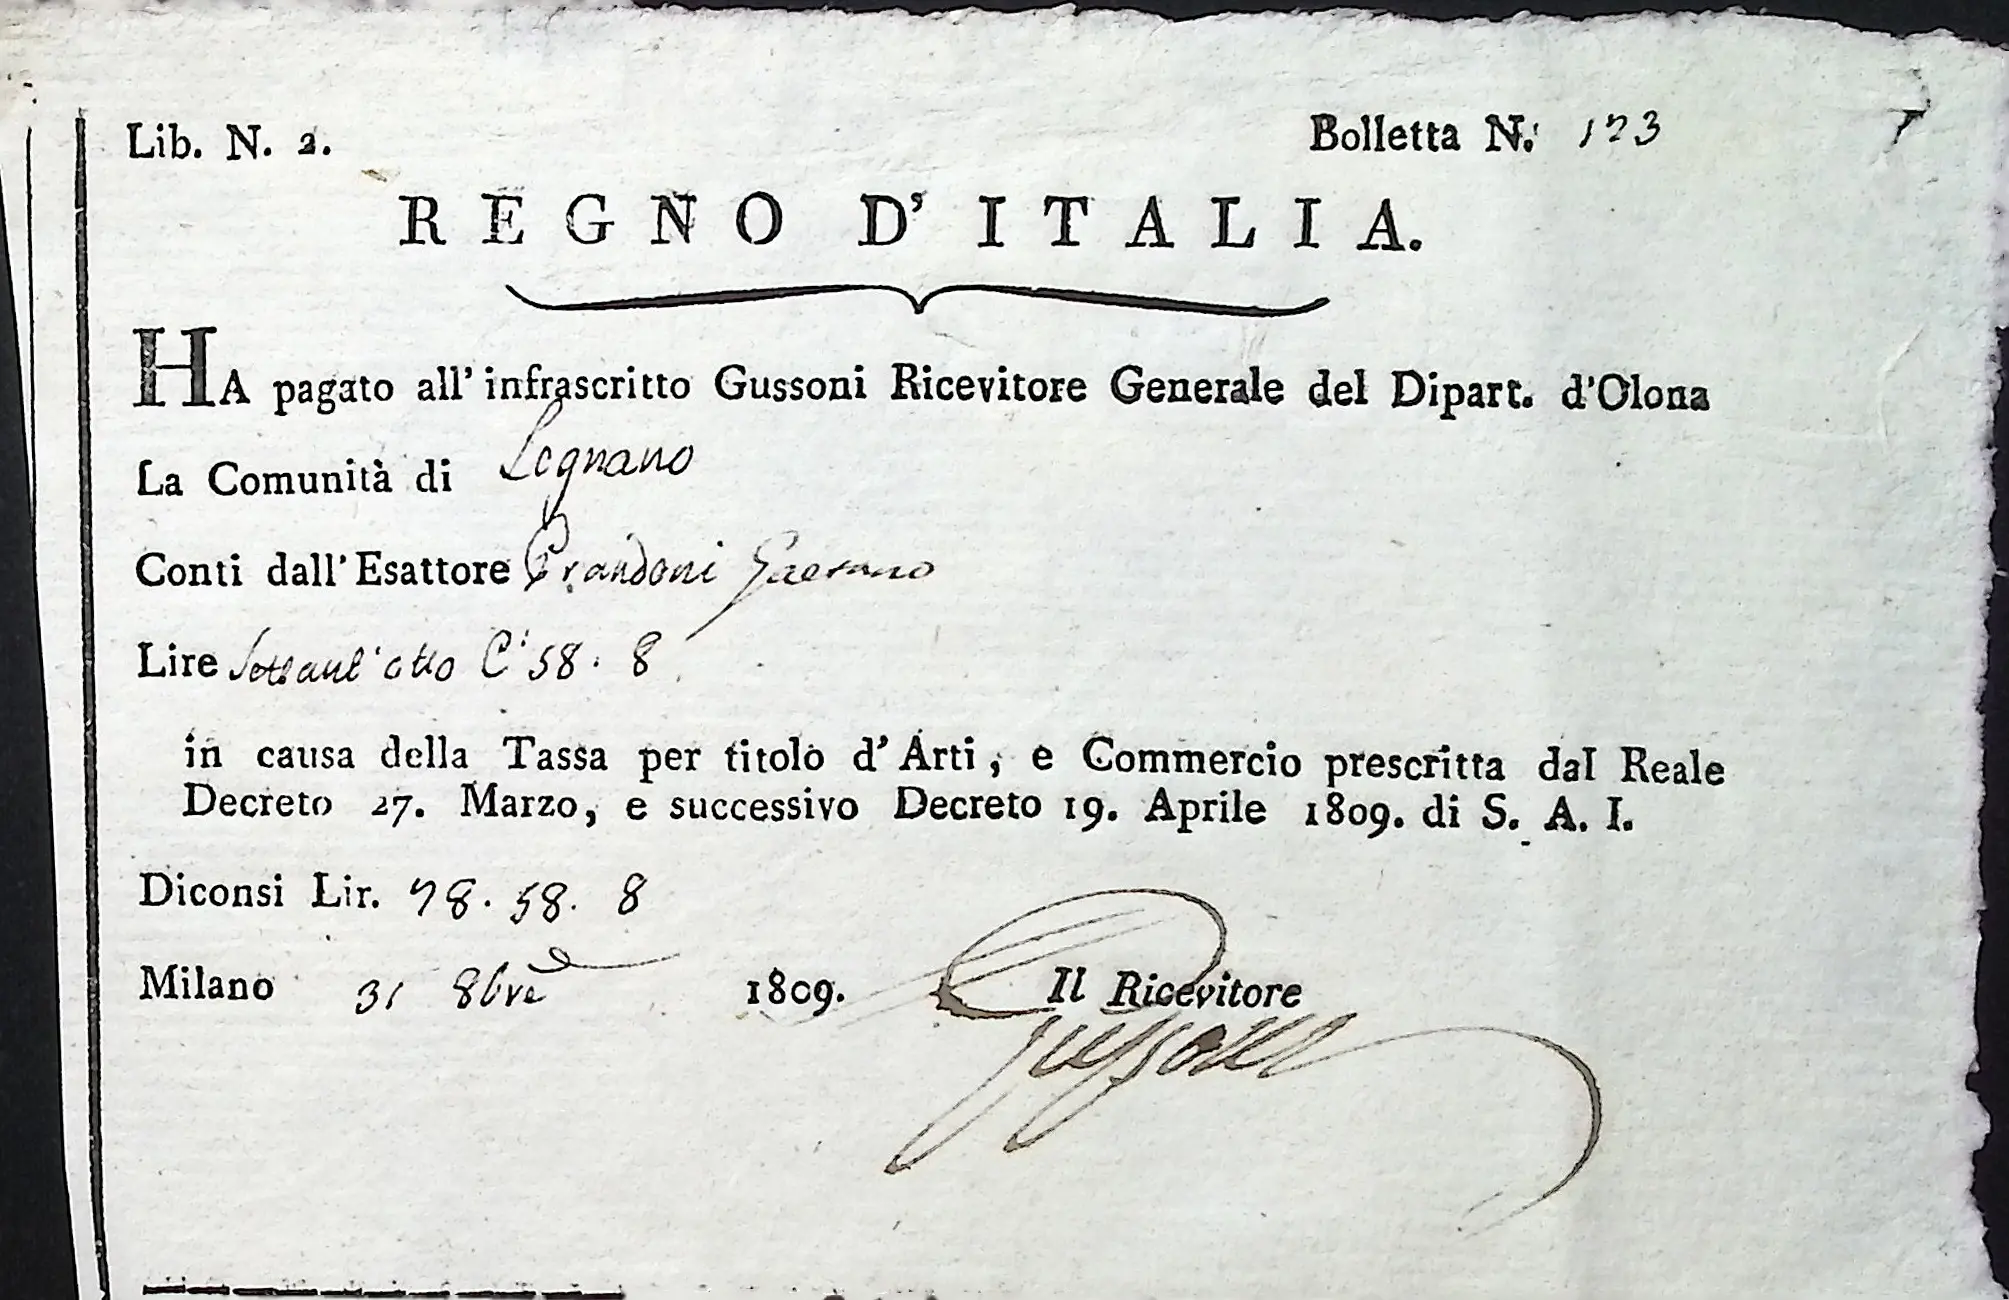 Lib. N. 2.
Bolletta N.: 173
REGNO D'ITALIA.
HA pagato all'infrascritto Gussoni Ricevitore Generale del Dipart. d'Olona
La Comunità di Legnano
Conti dall'Esattore Prandoni Gaetano
Lire Settant'otto C.i 58. 8
in causa della Tassa per titolo d'Arti, e Commercio prescritta dal Reale
Decreto 27. Marzo, e successivo Decreto 19. Aprile 1809. di S. A. I.
Diconsi Lir. 78. 58. 8
Milano 31 8bre 1809. Il Ricevitore
Gussoni